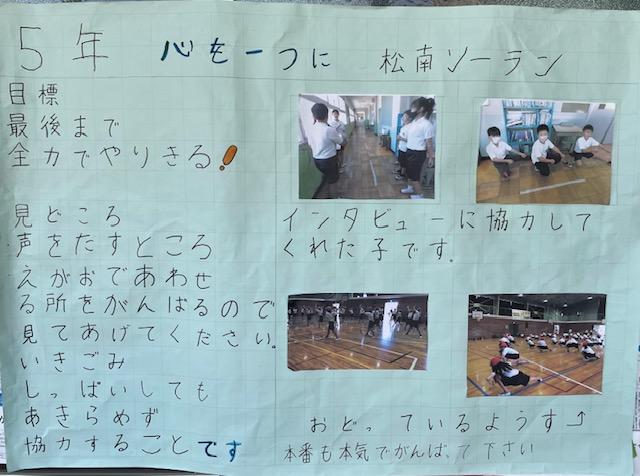 5年 心を一つに 松南ソーラン
目標
最後まで
全力でやりきる!
見どころ
声をたすところ
えがおであわせ
る所をがんばるので
見てあげてください。
いきごみ
しっぱいしても
あきらめず
協力することです
インタビューに協力して
くれた子です。
おどっているようす⤴
本番も本気でがんばって下さい